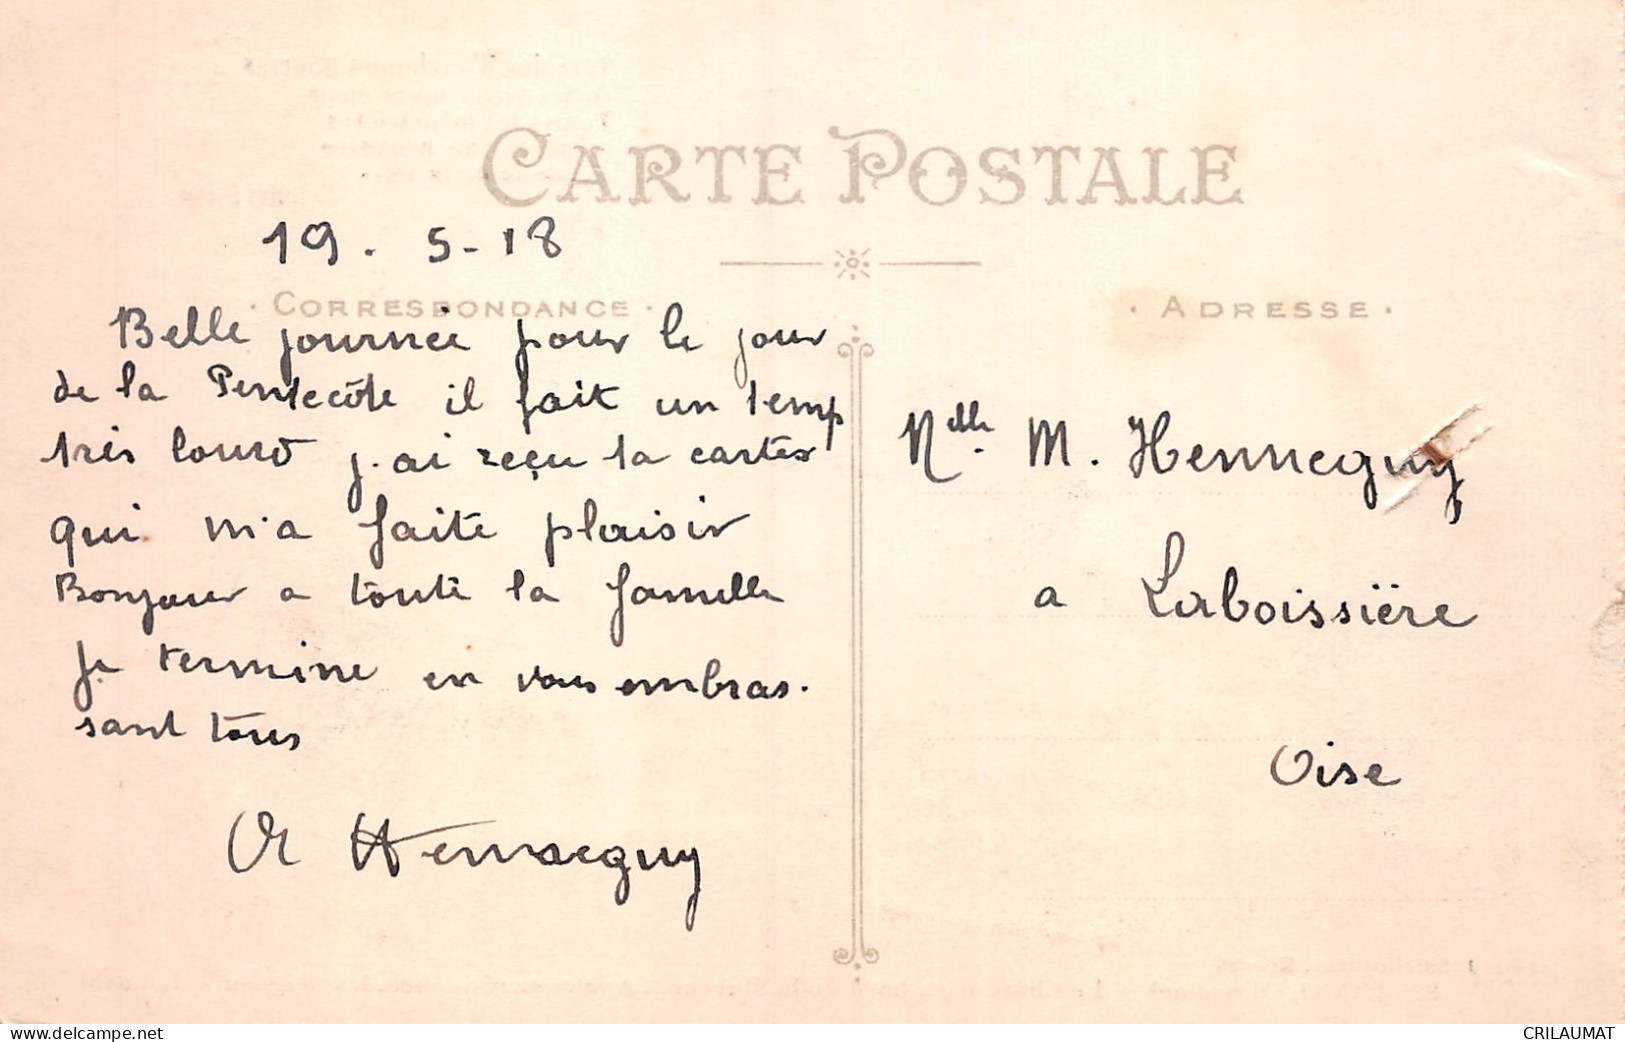 CARTE POSTALE
19. 5-18
· CORRESPONDANCE ·
· ADRESSE ·
Belle journée pour le jour
de la Pentecôte il fait un temp
très lourd j.ai reçu ta cartes
qui m'a faite plaisir
Bonjour a toute la famille
je termine en vous embras.
sant tous
Henneguy
Melle. M. Henneguy
a Laboissière
Oise
www.delcampe.net
CRILAUMAT